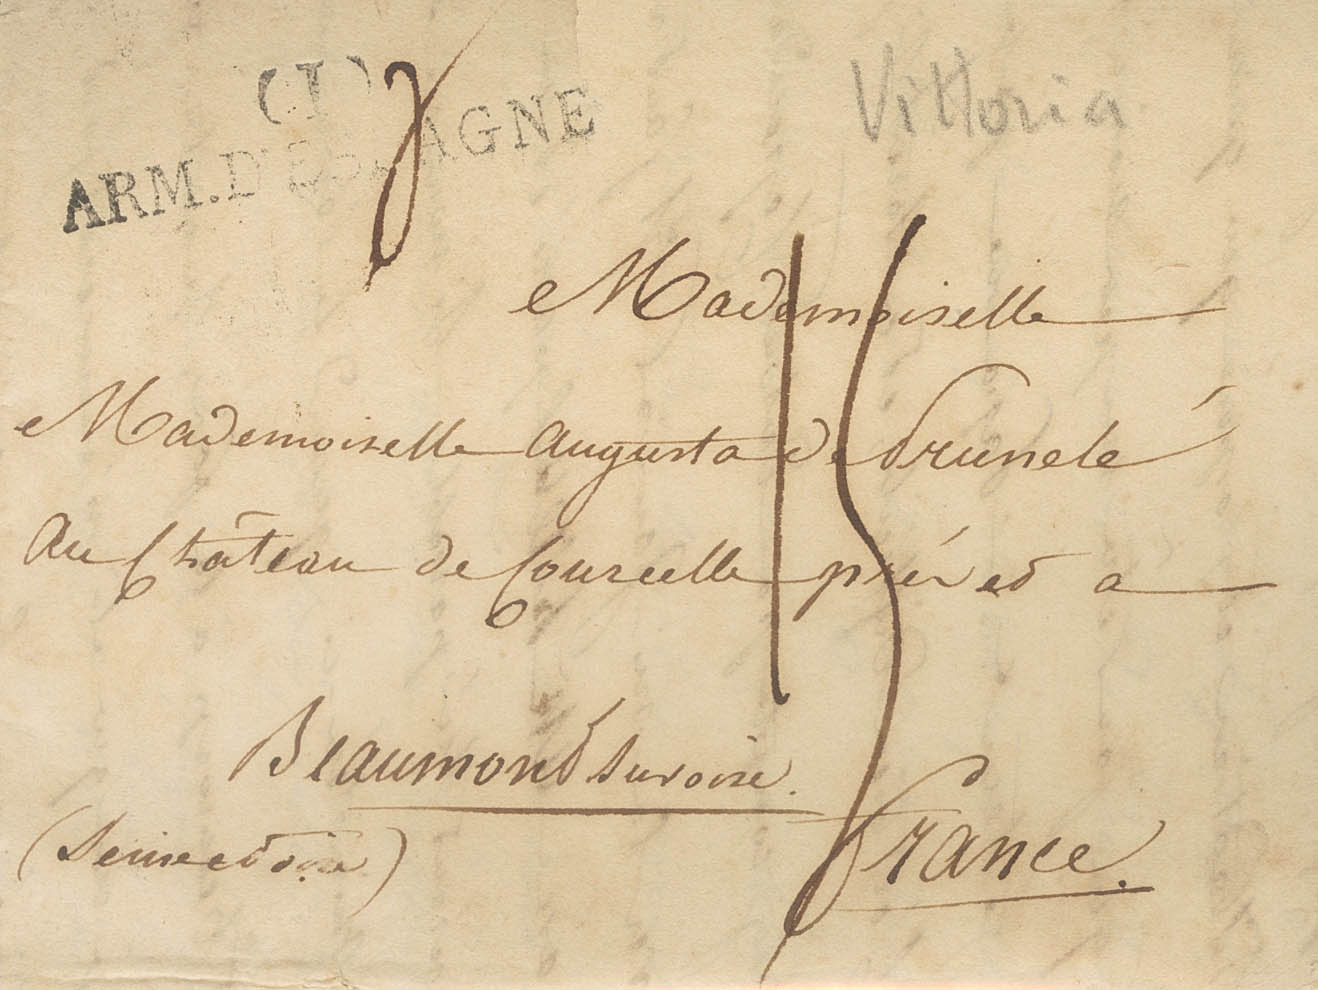 (I)
ARM. D'ESPAGNE
Vittoria
15
Mademoiselle
Mademoiselle Augusta de Prunelé
au Château de Courcelle prés et a
Beaumont suroise.
(Seine et oise)
France.